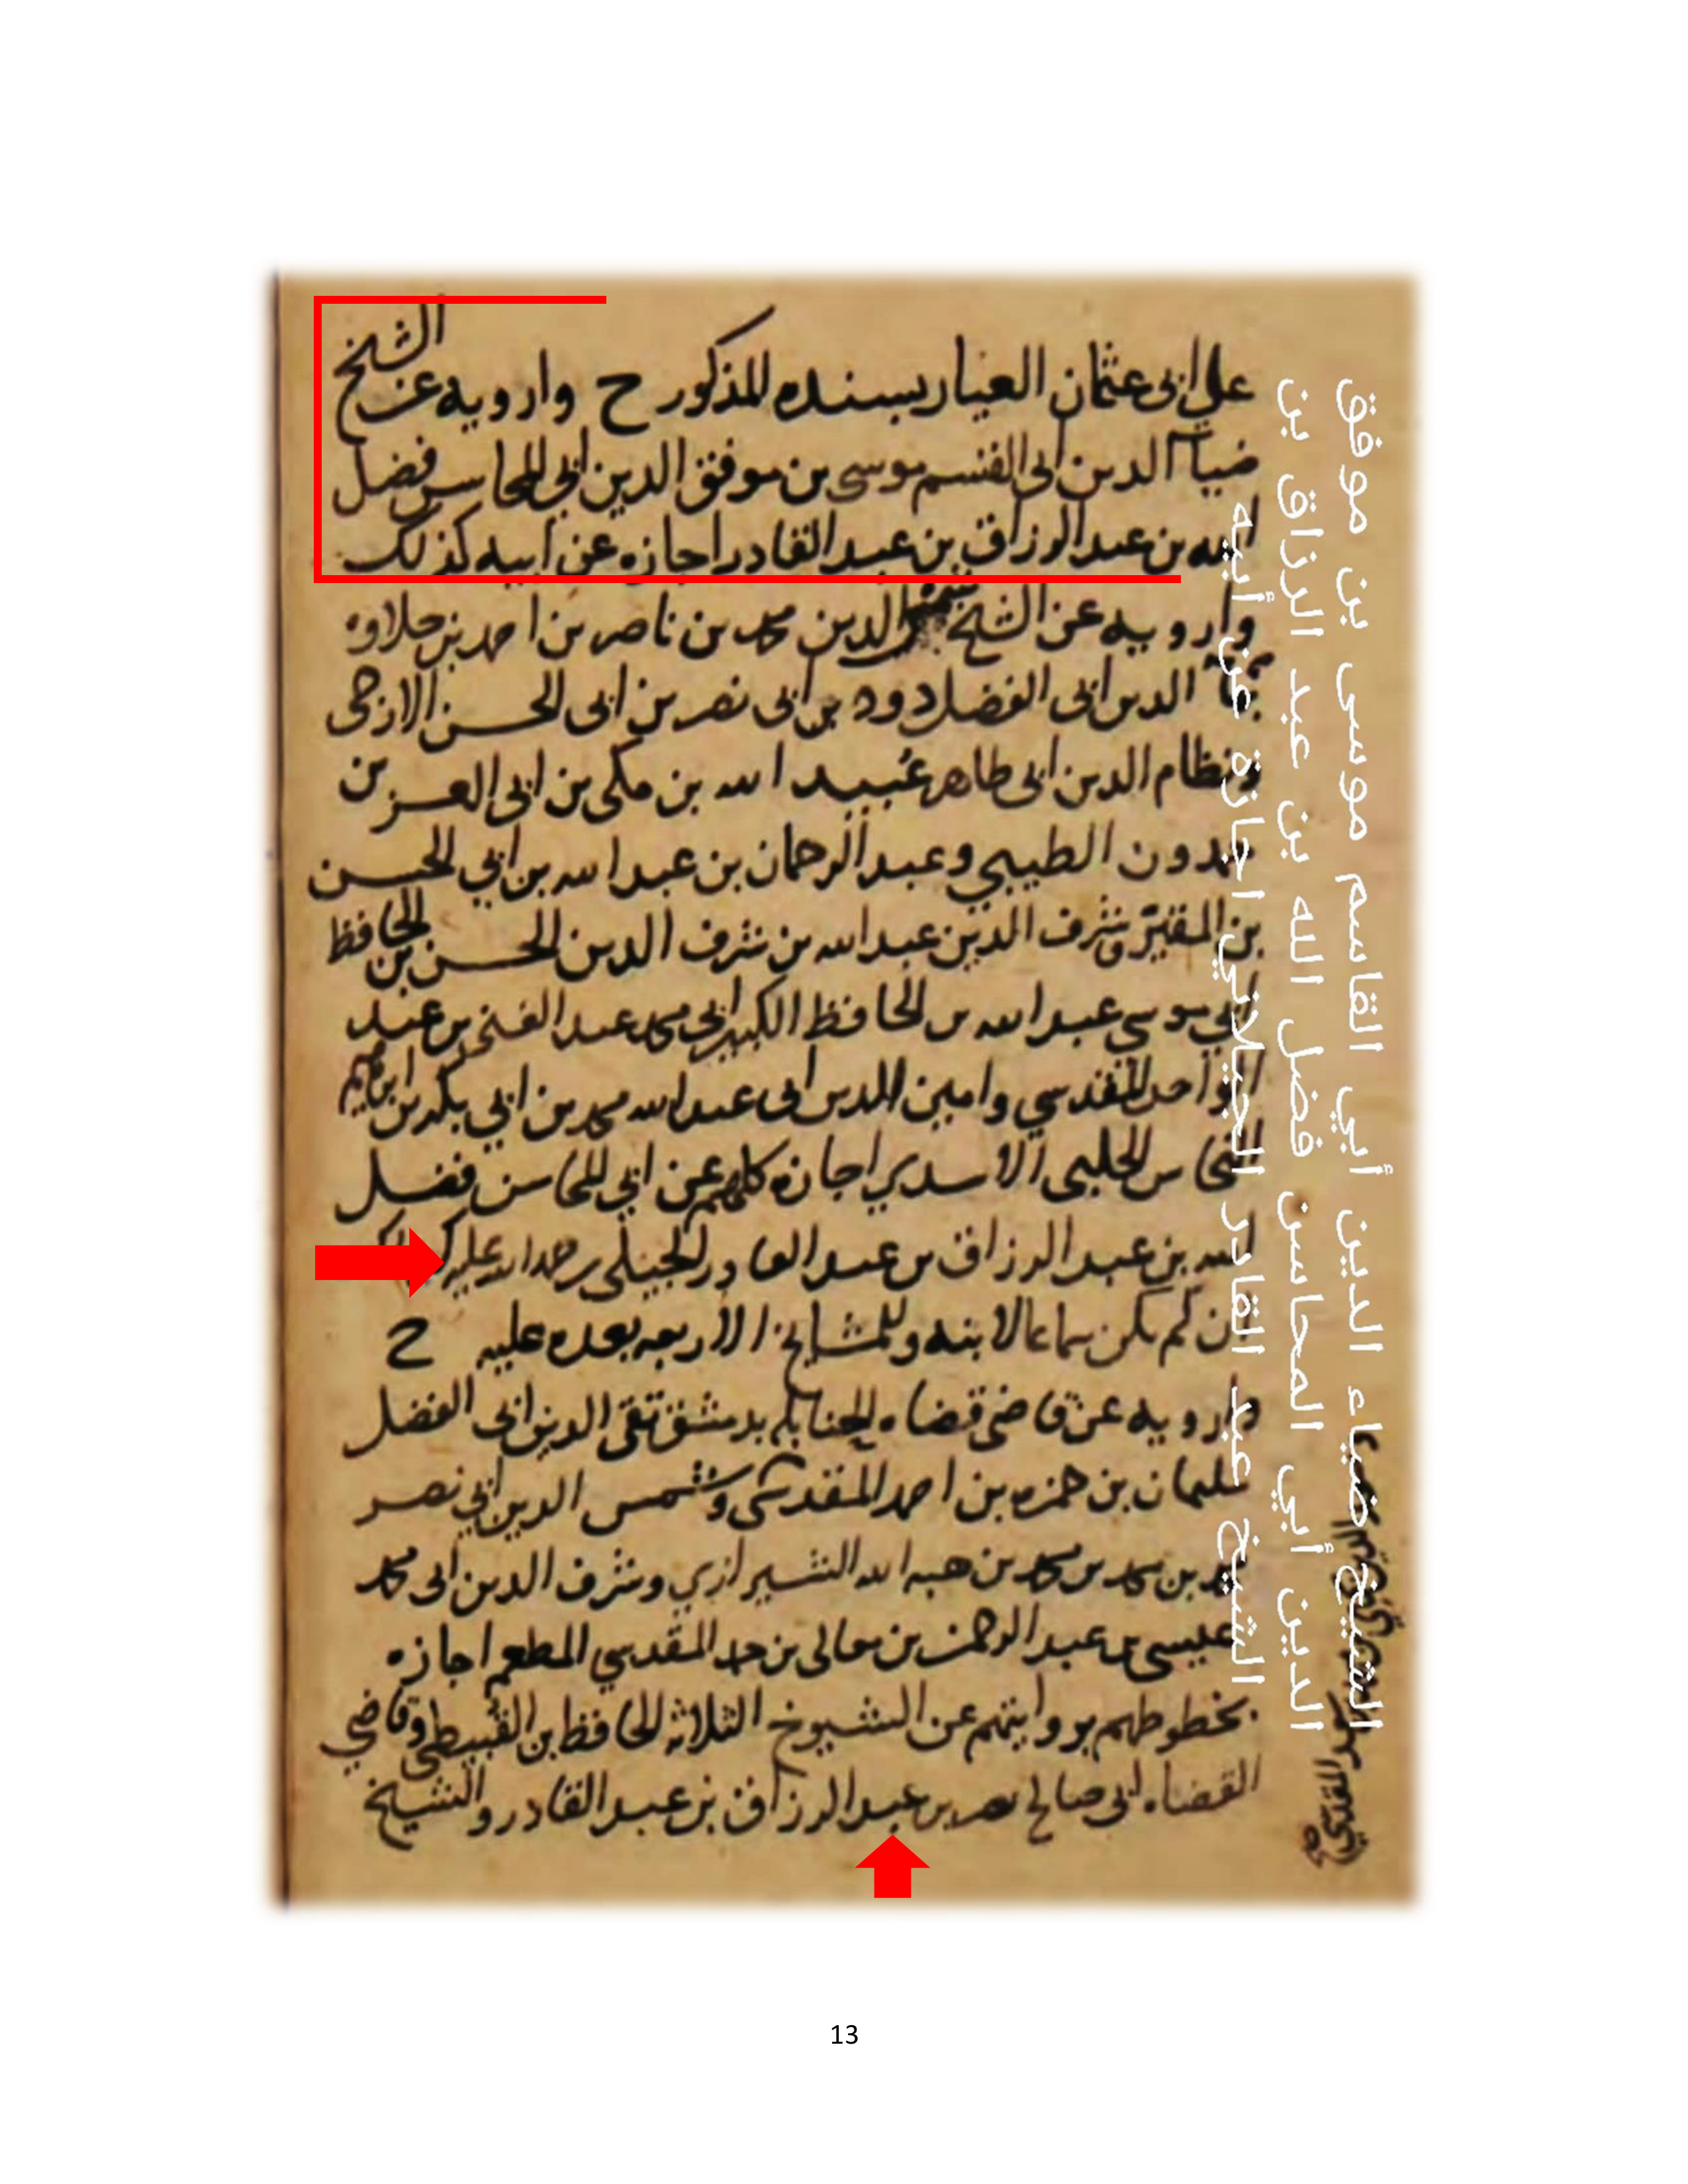 الشيخ
علي ابي عثمان العيار بسنده المذكور ح وارويه عن
ضيا الدين ابى القسم موسى بن موفق الدين ابي المحاسن فضل
الله بن عبد الرزاق بن عبد القادر اجازه عن ابيه كذلك
وارويه عن الشيخ شمس الدين محمد بن ناصر بن احمد بن حلاوه
الدين ابي الفضل دود بن ابى نصر بن ابى الحسن الازجى
ونظام الدين ابى طاهر عُبيد الله بن مكى بن ابى العز بن
الطيبي وعبد الرحمان بن عبد الله بن ابي الحسن
بن المقيّر وشرف الدين عبد الله بن شرف الدين الحسن بن الحافظ
ابي موسي عبد الله بن الحافظ الكبير ابي محمد عبد الغنى بن عبد
الواحد المقدسي وامين الدين ابى عبد الله محمد بن ابي بكر بن ابراهيم
النحاس الحلبى الاسدي اجازه كلهم عن ابي المحاسن فضل
الله بن عبد الرزاق بن عبد القادر الجيلى رحمه الله عليه
ان لم يكن سماعا لابنه وللمشايخ الاربعه بعده عليه ح
وارويه عن قاضى قضاه الحنابله بدمشق تقى الدين ابى الفضل
سليمان بن حمزه بن احمد المقدسى وشمس الدين ابي نصر
محمد بن محمد بن محمد بن هبه الله الشيرازي وشرف الدين ابى محمد
عيسى بن عبد الرحمن بن معالى بن حمد المقدسي المطعم اجازه
بخطوطهم بروايتهم عن الشيوخ الثلاثه الحافظ بن القُبيطى وقاضي
القضاه ابى صالح نصر بن عبد الرزاق بن عبد القادر والشيخ
الشيخ ضياء الدين أبي القاسم موسى بن موفق
الدين أبي المحاسن فضل الله بن عبد الرزاق بن
الشيخ عبد القادر الجيلاني اجازة عن أبيه
13